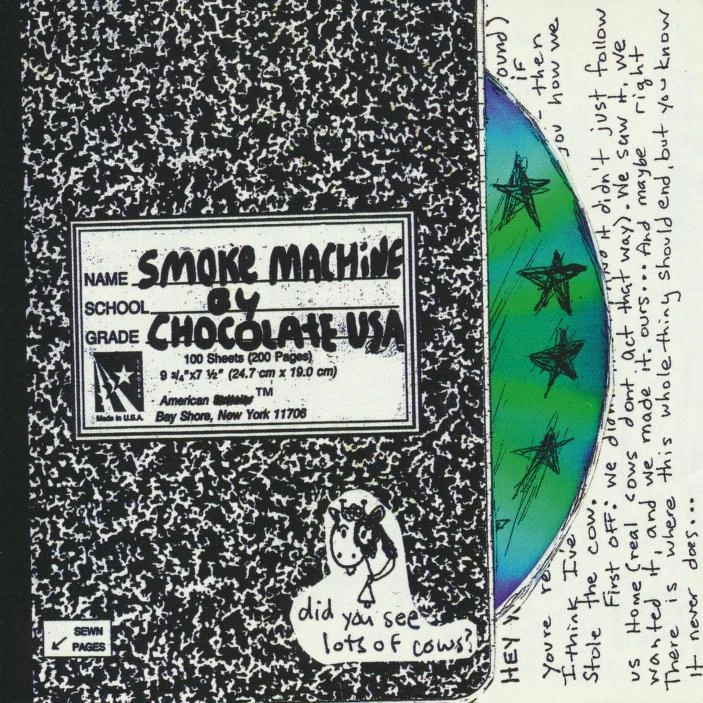 NAME SMOKE MACHINE
SCHOOL BY
GRADE CHOCOLATE USA
100 Sheets (200 Pages)
9 3/4"x7 ½" (24.7 cm x 19.0 cm)
American TM
Made in U.S.A.
Bay Shore, New York 11706
did you see
lots of cows?
SEWN
PAGES
HEY
You're
I think I've
Stole the cow.
First off: we it didn't just follow
us Home (real cows dont act that way). We saw it, we
wanted it, and we made it ours... And maybe right
There is where this whole thing should end, but you know
It never does...
if
- then
you how we